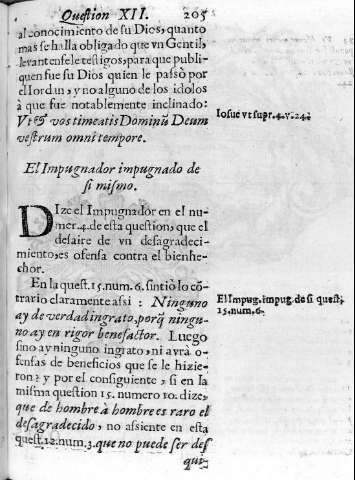 Question XII. 205
al conocimiento de su Dios, quanto
mas se halla obligado que vn Gentil,
levantensele testigos, para que publi-
quen fue su Dios quien le passò por
el Iordan, y no alguno de los idolos
à que fue notablemente inclinado:
Vt & vos timeatis Dominũ Deum
vestrum omni tempore.
Iosue vt supr. 4. v. 24.
El Impugnador impugnado de
si mismo.
DIze el Impugnador en el nu-
mer. 4. de esta question, que el
desaire de vn desagradeci-
miento, es ofensa contra el bienhe-
chor.
En la quest. 15. num. 6. sintiò lo cõ-
trario claramente assi : Ninguno
ay de verdad ingrato, porq̃ ningu-
no ay en rigor benefactor. Luego
sino ay ninguno ingrato, ni avrà o-
fensas de beneficios que se le hizie-
ron: y por el consiguiente, si en la
misma question 15. numero 10. dize,
que de hombre à hombre es raro el
desagradecido, no assiente en esta
quest. 12. num. 3. que no puede ser des
qui-
El Impug. impug. de si quest.
15. num. 6.